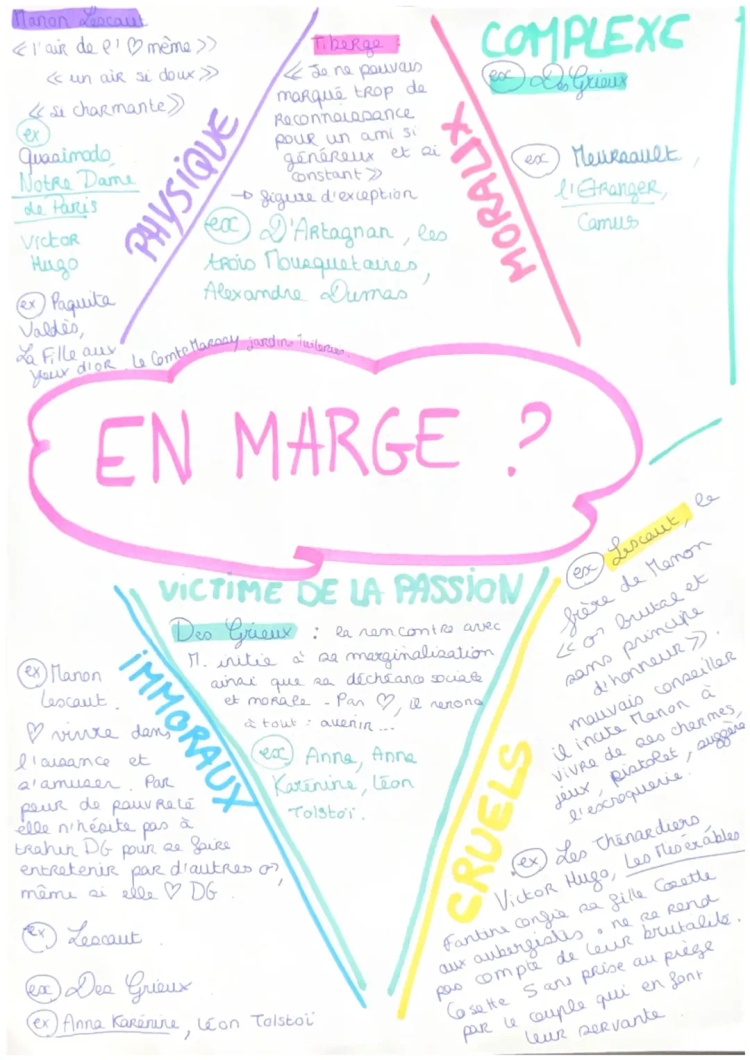 Manon Lescaut
« l'air de l'♡ même »
« un air si doux »
« si charmante »
ex
Quasimodo,
Notre Dame
de Paris
Victor
Hugo
ex Paquita
Valdès,
La Fille aux
yeux d'or, le Comte Marsay jardin Tuileries
PHYSIQUE
Tiberge :
« Je ne pouvais
marqué trop de
reconnaissance
pour un ami si
généreux et si
constant »
→ figure d'exception
ex D'Artagnan, les
trois Mousquetaires,
Alexandre Dumas
MORAUX
COMPLEXE
ex Des Grieux
ex Meursault,
l'Etranger,
Camus
EN MARGE ?
VICTIME DE LA PASSION
Des Grieux : la rencontre avec
M. initie à sa marginalisation
ainsi que sa déchéance sociale
et morale - Par ♡, il renonce
à tout : avenir...
ex Anna, Anna
Karénine, Léon
Tolstoï.
IMMORAUX
ex Manon
Lescaut.
♡ vivre dans
l'aisance et
s'amuser. Par
peur de pauvreté
elle n'hésite pas à
trahir DG pour se faire
entretenir par d'autres ♂,
même si elle ♡ DG.
ex Lescaut.
ex Des Grieux
ex Anna Karénine, Léon Tolstoï
CRUELS
ex Lescaut, le
frère de Manon
« ♂ brutal et
sans principe
d'honneur ».
mauvais conseiller
il incite Manon à
vivre de ses charmes,
jeux, pistolet, suggère
l'escroquerie.
ex Les Thénardiers
Victor Hugo, Les Misérables
Fantine confie sa fille Cosette
aux aubergistes, ne se rend
pas compte de leur brutalité.
Cosette 5 ans prise au piège
par le couple qui en font
leur servante.